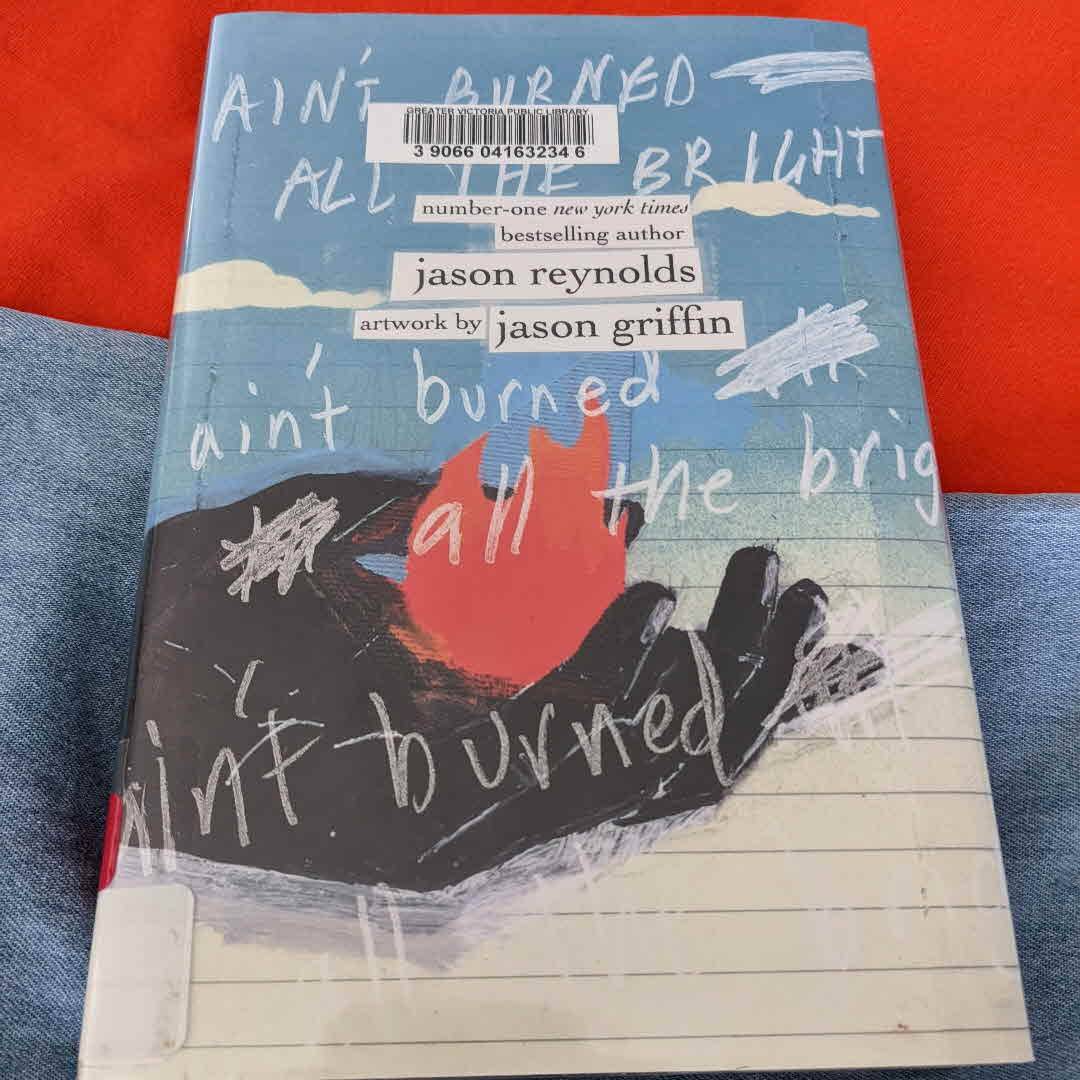 AIN'T BURNED
GREATER VICTORIA PUBLIC LIBRARY
3 9066 04163234 6
ALL THE BRIGHT
number-one new york times
bestselling author
jason reynolds
artwork by jason griffin
ain't burned
all the brig
ain't burned
all